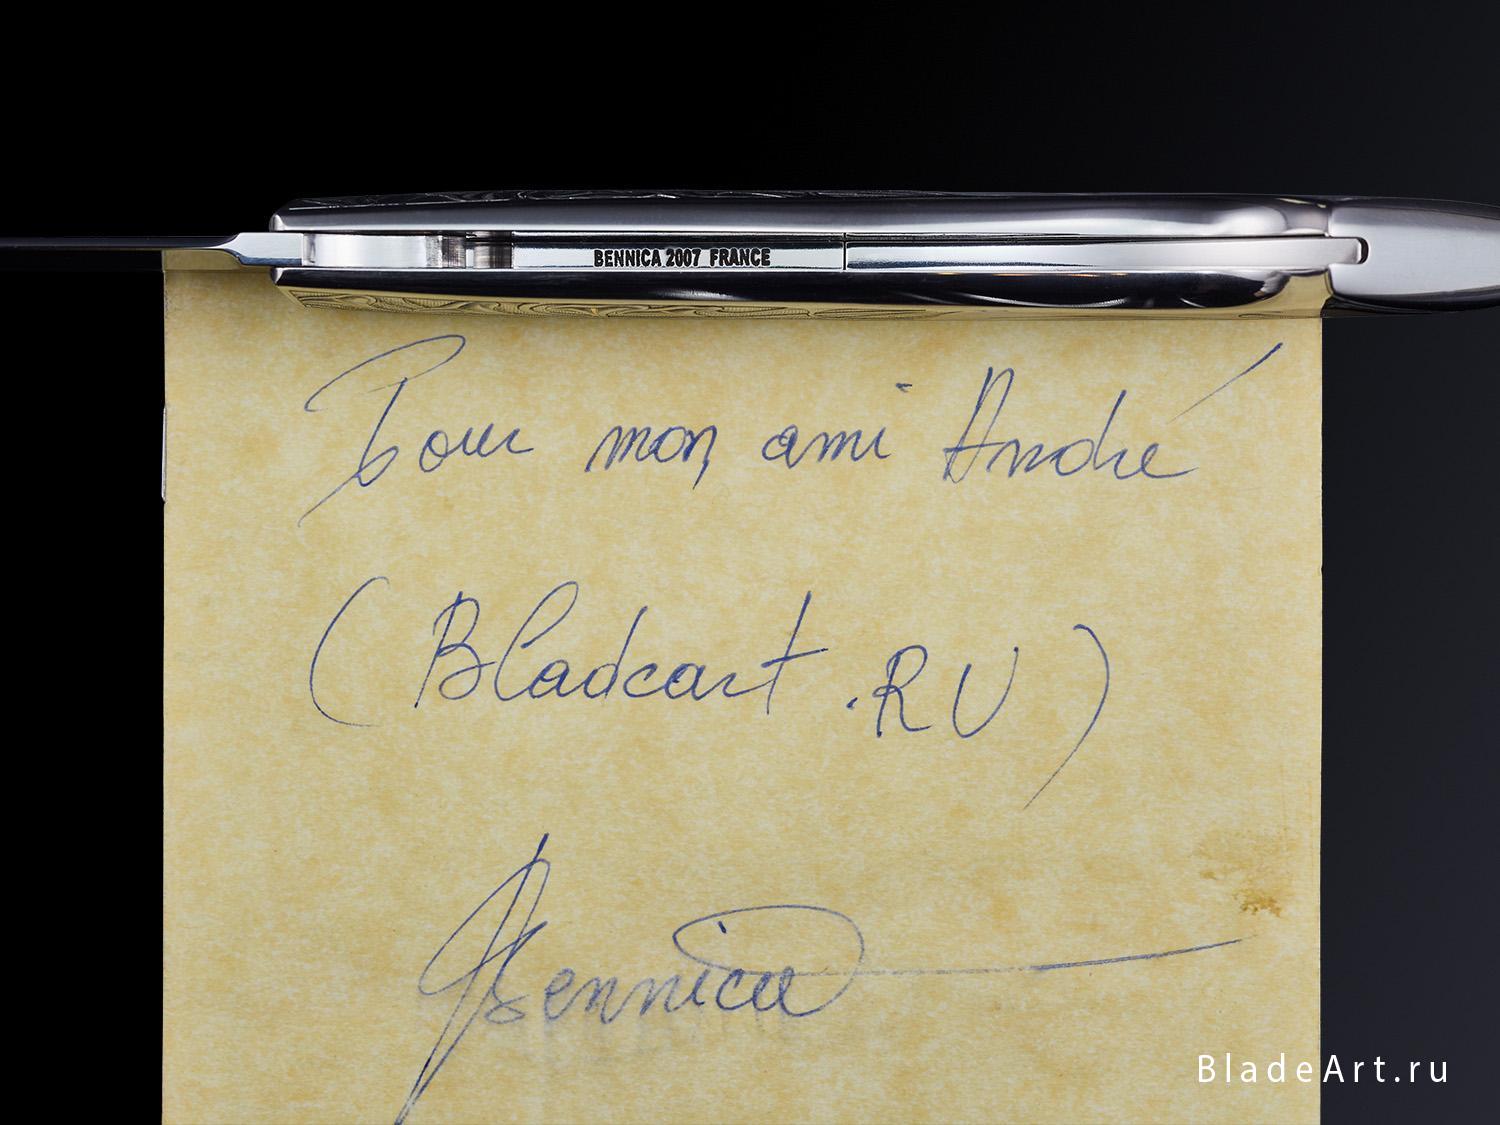 BENNICA 2007 FRANCE
Pour mon ami André
(Bladeart .RU)
Bennica
BladeArt.ru